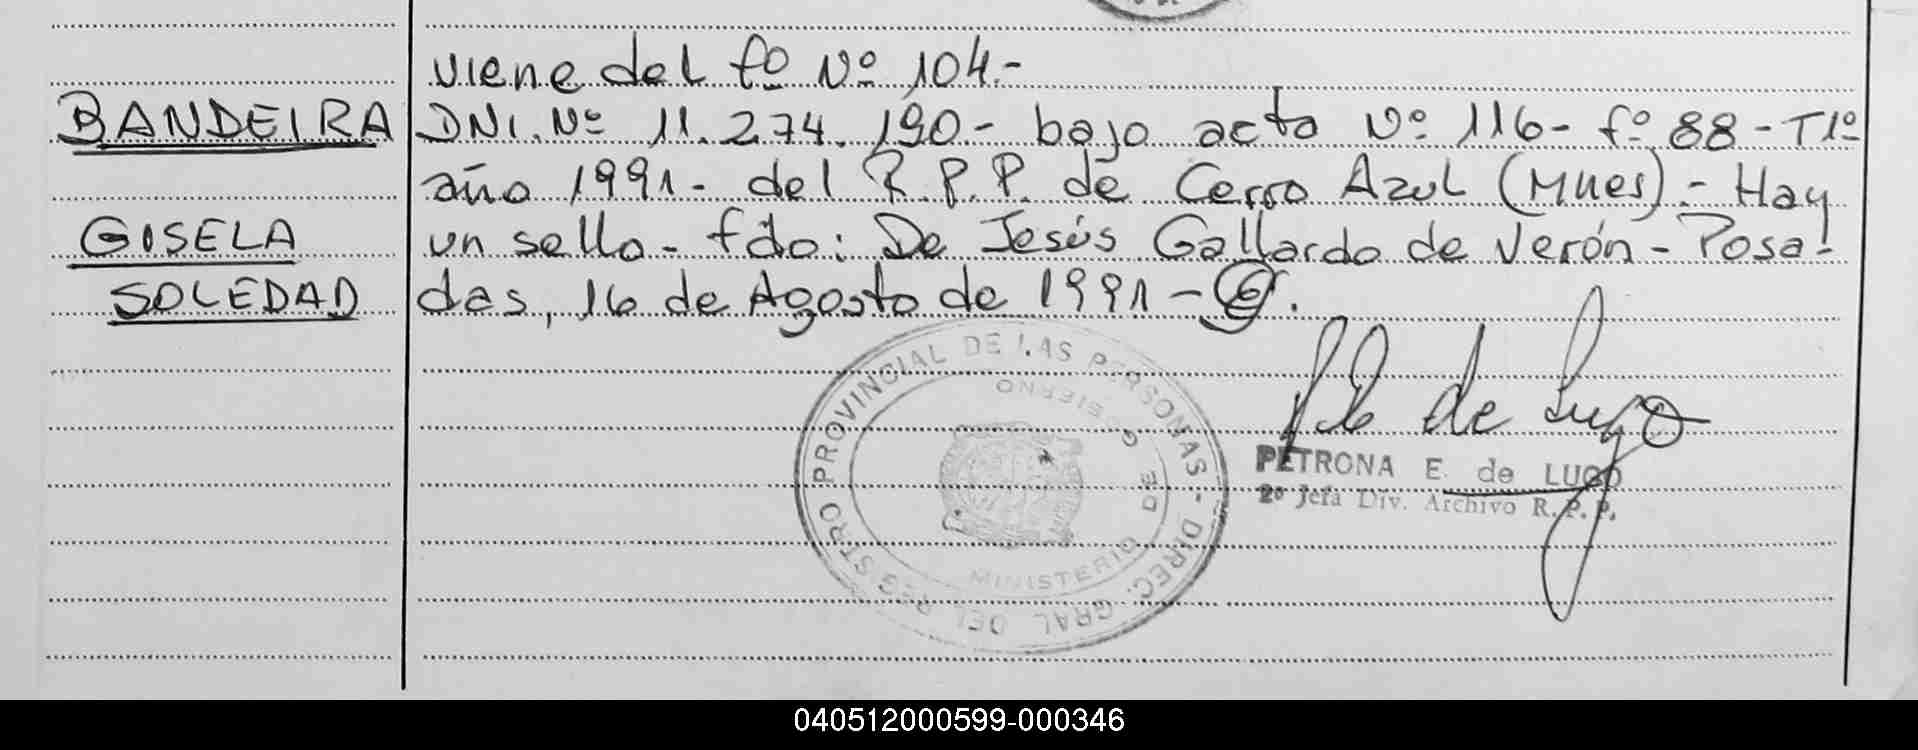 viene del fº Nº 104.-
BANDEIRA
DNI. Nº 11.274.190- bajo acta Nº 116- fº 88- T1º
año 1991- del R.P.P. de Cerro Azul (Mnes)- Hay
GISELA
un sello- fdo: De Jesús Gallardo de Verón- Posa-
SOLEDAD
das, 16 de Agosto de 1991-
DIREC. GRAL DEL REGISTRO PROVINCIAL DE LAS PERSONAS -
MINISTERIO DE GOBIERNO
de Lugo
PETRONA E. de LUGO
2º Jefa Div. Archivo R.P.P.
040512000599-000346